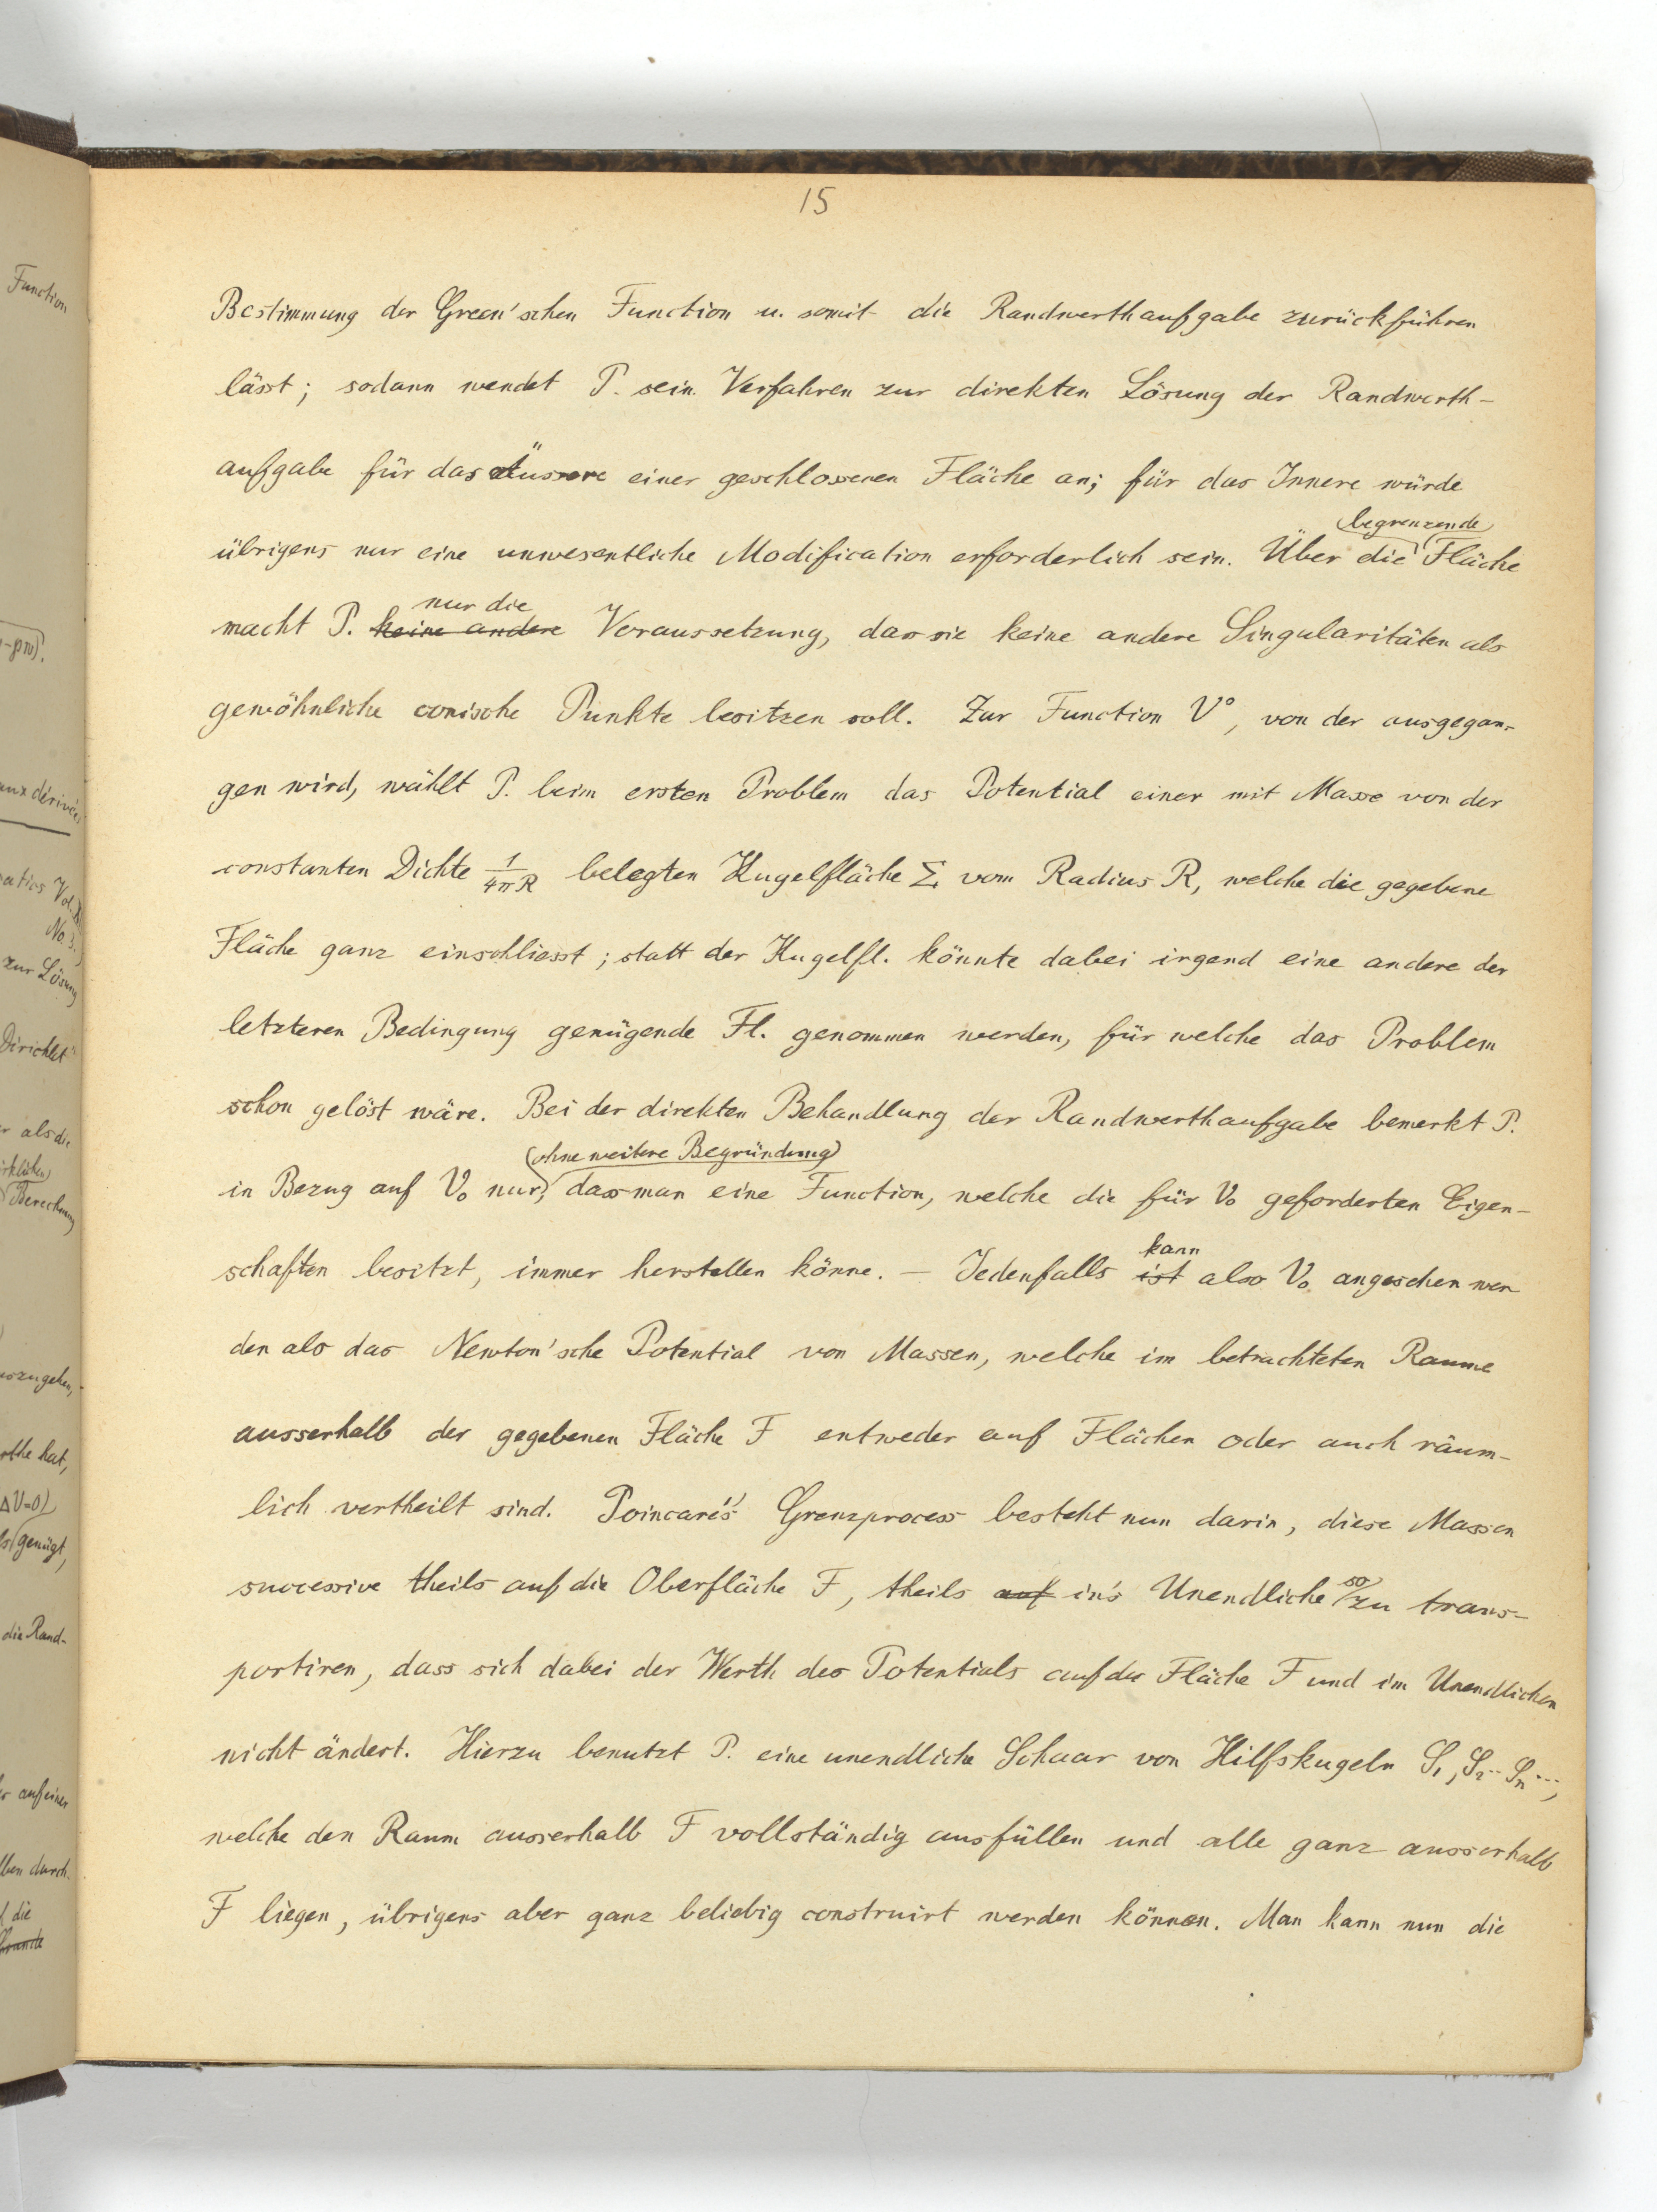 15
Bestimmung der Green'schen Function u. somit die Randwerthaufgabe zurückführen
lässt; sodann wendet P. sein Verfahren zur direkten Lösung der Randwerth-
aufgabe für das Äussere einer geschlossenen Fläche an; für das Innere würde
begrenzende
übrigens nur eine unwesentliche Modification erforderlich sein. Über die Fläche
nur die
macht P. keine andere Voraussetzung, dass sie keine andere Singularitäten als
gewöhnliche conische Punkte besitzen soll. Zur Function V°, von der ausgegan-
gen wird, wählt P. beim ersten Problem das Potential einer mit Masse von der
constanten Dichte 1/4πR belegten Kugelfläche Σ vom Radius R, welche die gegebene
Fläche ganz einschliesst; statt der Kugelfl. könnte dabei irgend eine andere der
letzteren Bedingung genügende Fl. genommen werden, für welche das Problem
schon gelöst wäre. Bei der direkten Behandlung der Randwerthaufgabe bemerkt P.
(ohne weitere Begründung)
in Bezug auf V₀ nur, dass man eine Function, welche die für V₀ geforderten Eigen-
schaften besitzt, immer herstellen könne. — Jedenfalls ist also V₀ angesehen wer
kann
den als das Newton'sche Potential von Massen, welche im betrachteten Raume
ausserhalb der gegebenen Fläche F entweder auf Flächen oder auch räum-
lich vertheilt sind. Poincaré's Grenzprocess besteht nun darin, diese Massen
successive theils auf die Oberfläche F, theils auf in's Unendliche so zu trans-
portiren, dass sich dabei der Werth des Potentials auf der Fläche F und im Unendlichen
nicht ändert. Hierzu benutzt P. eine unendliche Schaar von Hilfskugeln S₁, S₂ ·· Sₙ ···,
welche den Raum ausserhalb F vollständig ausfüllen und alle ganz ausserhalb
F liegen, übrigens aber ganz beliebig construirt werden können. Man kann nun die
Function
-pw).
aux dérivées
Vol.
No. 3.
zur Lösung
Dirichlet
als die
Berechnung
auszugehen,
hat,
ΔV=0)
genügt,
die Rand-
auf einer
durch
die